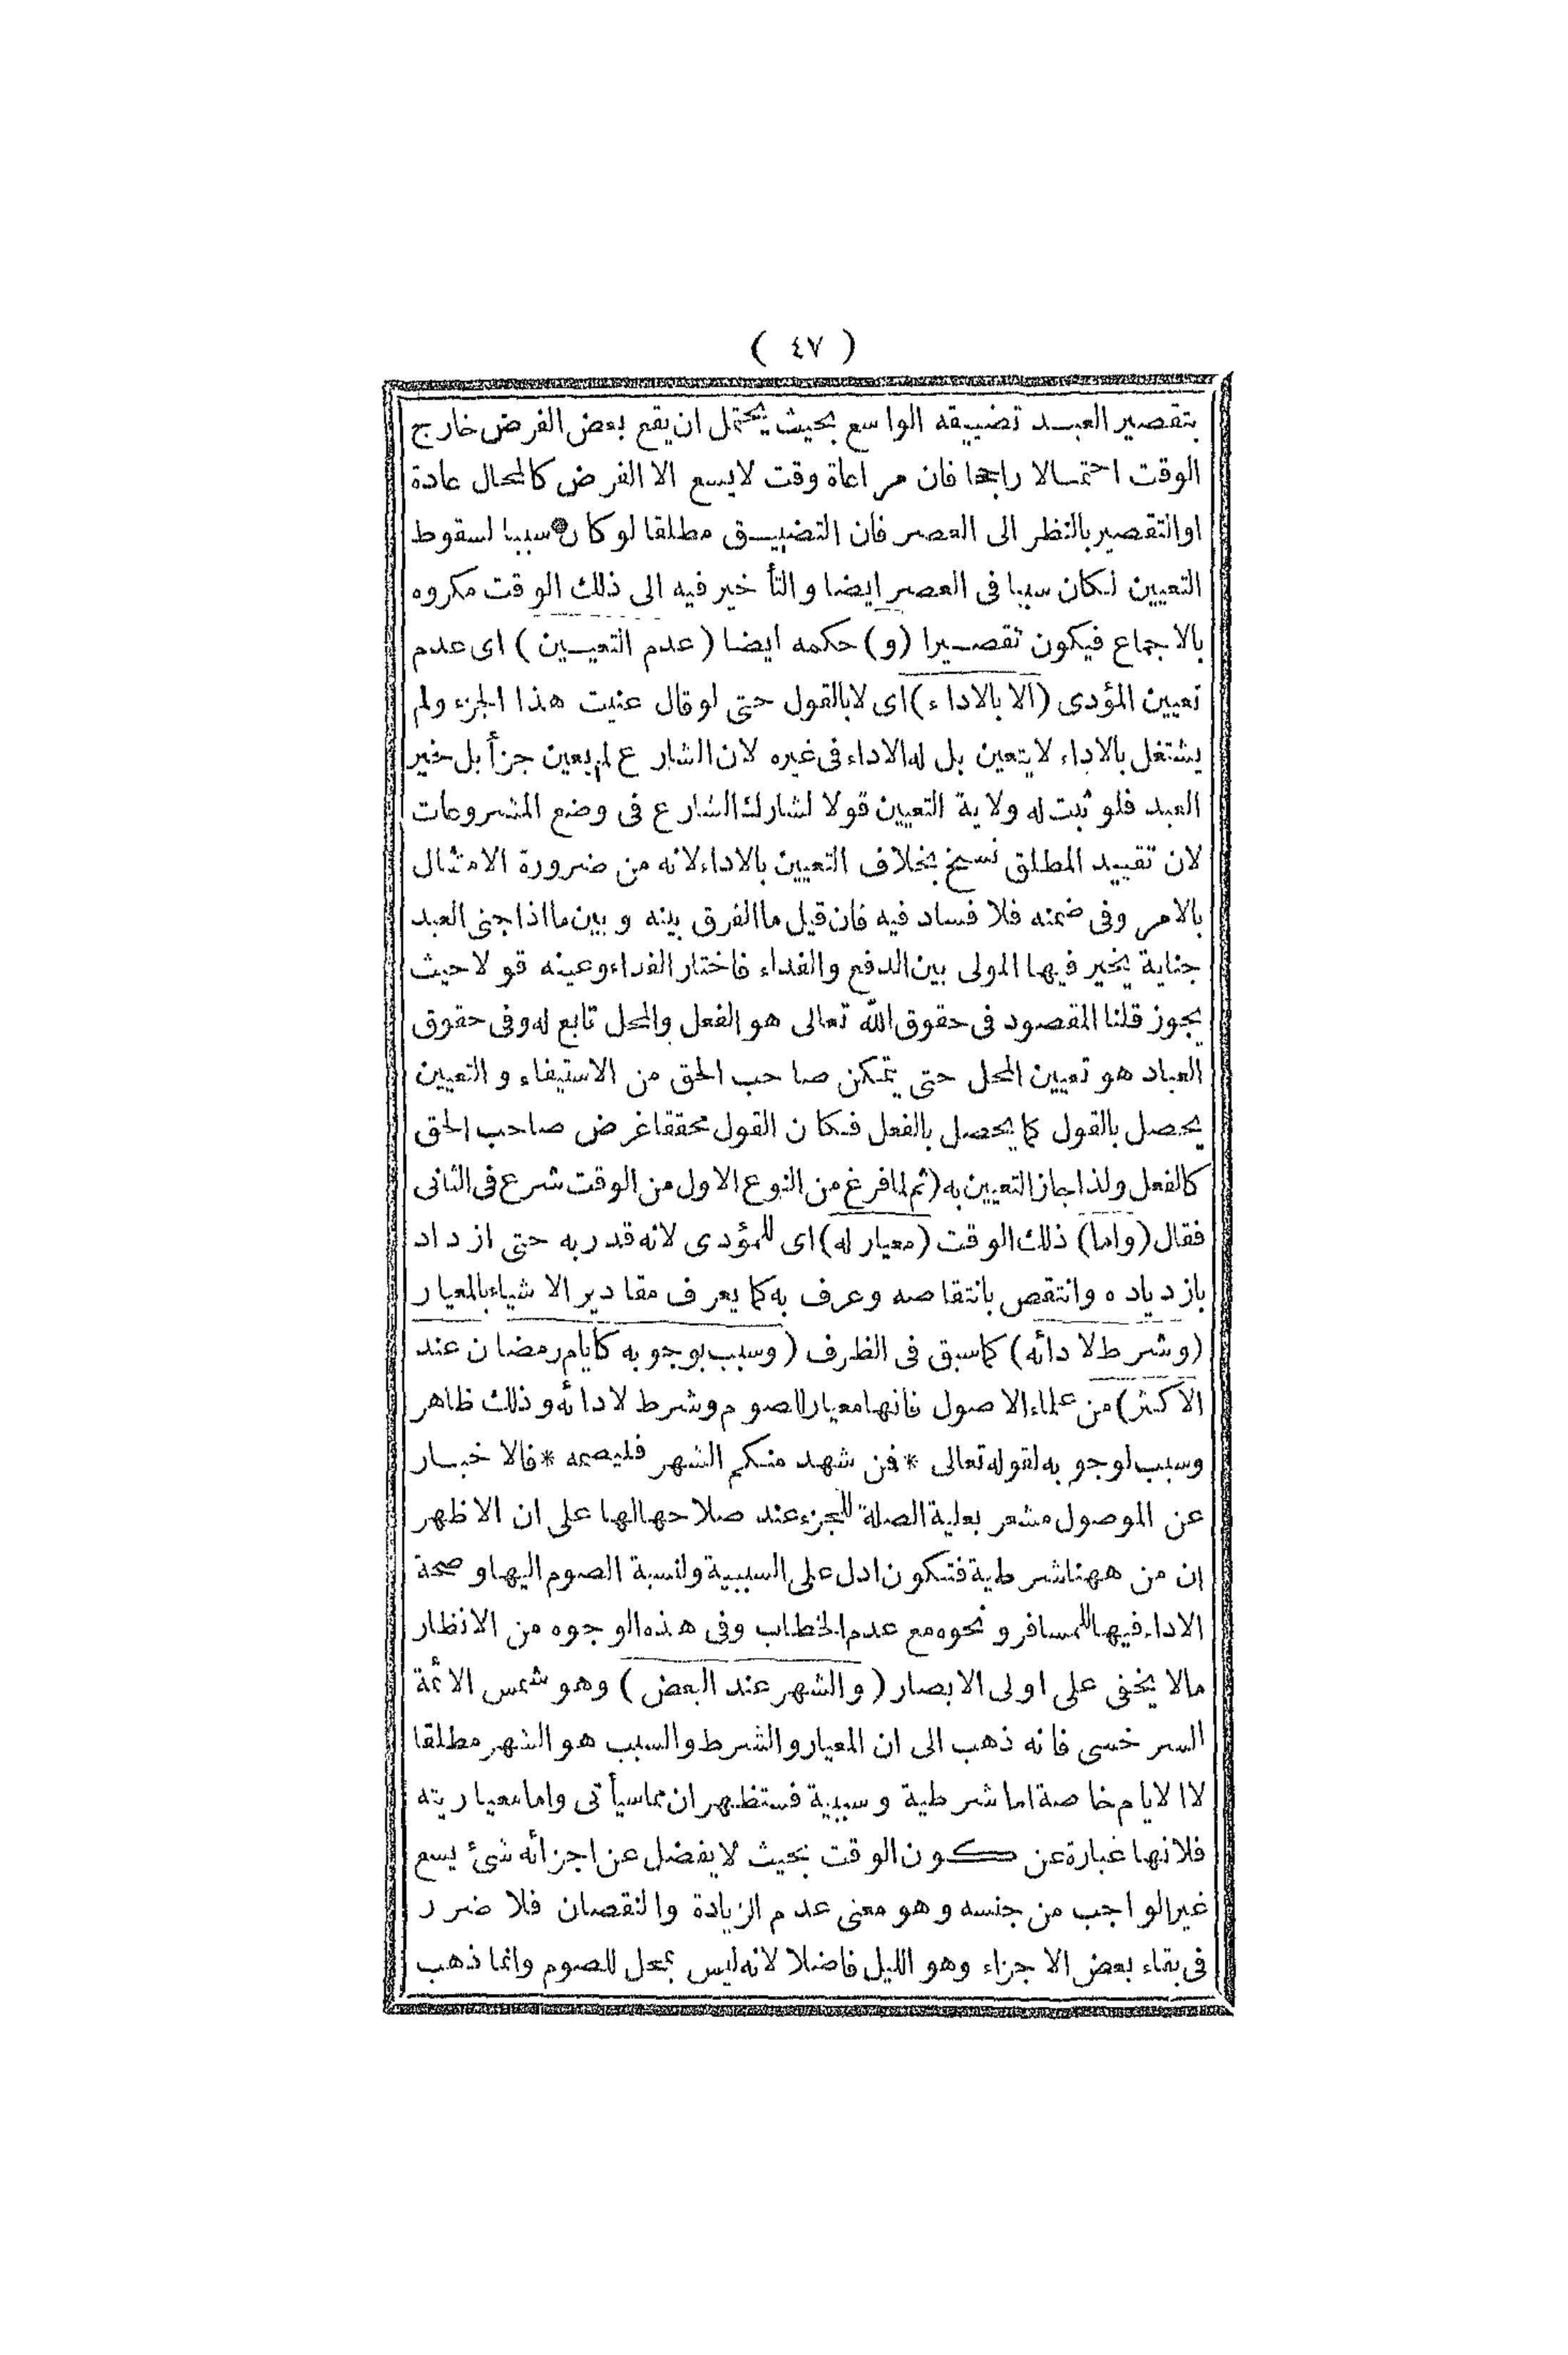 ( ٤٧ )
بتقصير العبد تضييقه الواسع بحيث يحتمل ان يقع بعض الفرض خارج
الوقت احتمالا راجحا فان مراعاة وقت لايسع الا الفرض كالمحال عادة
اوالتقصير بالنظر الى العصر فان التضييق مطلقا لوكان سببا لسقوط
التعيين لكان سببا فى العصر ايضا والتأخير فيه الى ذلك الوقت مكروه
بالاجماع فيكون تقصيرا (و) حكمه ايضا (عدم التعيين) اى عدم
تعيين المؤدى (الا بالاداء) اى لابالقول حتى لوقال عنيت هذا الجزء ولم
يشتغل بالاداء لايتعين بل له الاداء فى غيره لان الشارع لم يعين جزأ بل خير
العبد فلو ثبت له ولاية التعيين قولا لشارك الشارع فى وضع المشروعات
لان تقييد المطلق نسخ بخلاف التعيين بالاداء لانه من ضرورة الامتثال
بالامر وفى ضمنه فلا فساد فيه فان قيل ما الفرق بينه وبين ما اذا جنى العبد
جناية يخير فيها المولى بين الدفع والفداء فاختار الفداء وعينه قولا حيث
يجوز قلنا المقصود فى حقوق الله تعالى هو الفعل والمحل تابع له وفى حقوق
العباد هو تعيين المحل حتى يتمكن صاحب الحق من الاستيفاء والتعيين
يحصل بالقول كما يحصل بالفعل فكان القول محققا غرض صاحب الحق
كالفعل ولذا جاز التعيين به (ثم لما فرغ من النوع الاول من الوقت شرع فى الثانى
فقال (واما) ذلك الوقت (معيار له) اى للمؤدى لانه قدر به حتى ازداد
بازدياده وانتقص بانتقاصه وعرف به كما يعرف مقادير الاشياء بالمعيار
(وشرط لادائه) كماسبق فى الظرف (وسبب لوجوبه كايام رمضان عند
الاكثر) من علماء الاصول فانها معيار للصوم وشرط لادائه وذلك ظاهر
وسبب لوجوبه لقوله تعالى *فمن شهد منكم الشهر فليصمه *فالاخبار
عن الموصول مشعر بعلية الصلة للجزء عند صلاحها لها على ان الاظهر
ان من ههنا شرطية فتكون ادل على السببية ولنسبة الصوم اليها وصحة
الاداء فيها للمسافر ونحوه مع عدم الخطاب وفى هذه الوجوه من الانظار
مالا يخفى على اولى الابصار (والشهر عند البعض) وهو شمس الائمة
السرخسى فانه ذهب الى ان المعيار والشرط والسبب هو الشهر مطلقا
لا الايام خاصة اما شرطية وسببية فستظهران مماسيأتى واما معياريته
فلانها عبارة عن كون الوقت بحيث لايفضل عن اجزائه شئ يسع
غير الواجب من جنسه وهو معنى عدم الزيادة والنقصان فلا ضرر
فى بقاء بعض الاجزاء وهو الليل فاضلا لانه ليس بمحل للصوم وانما ذهب